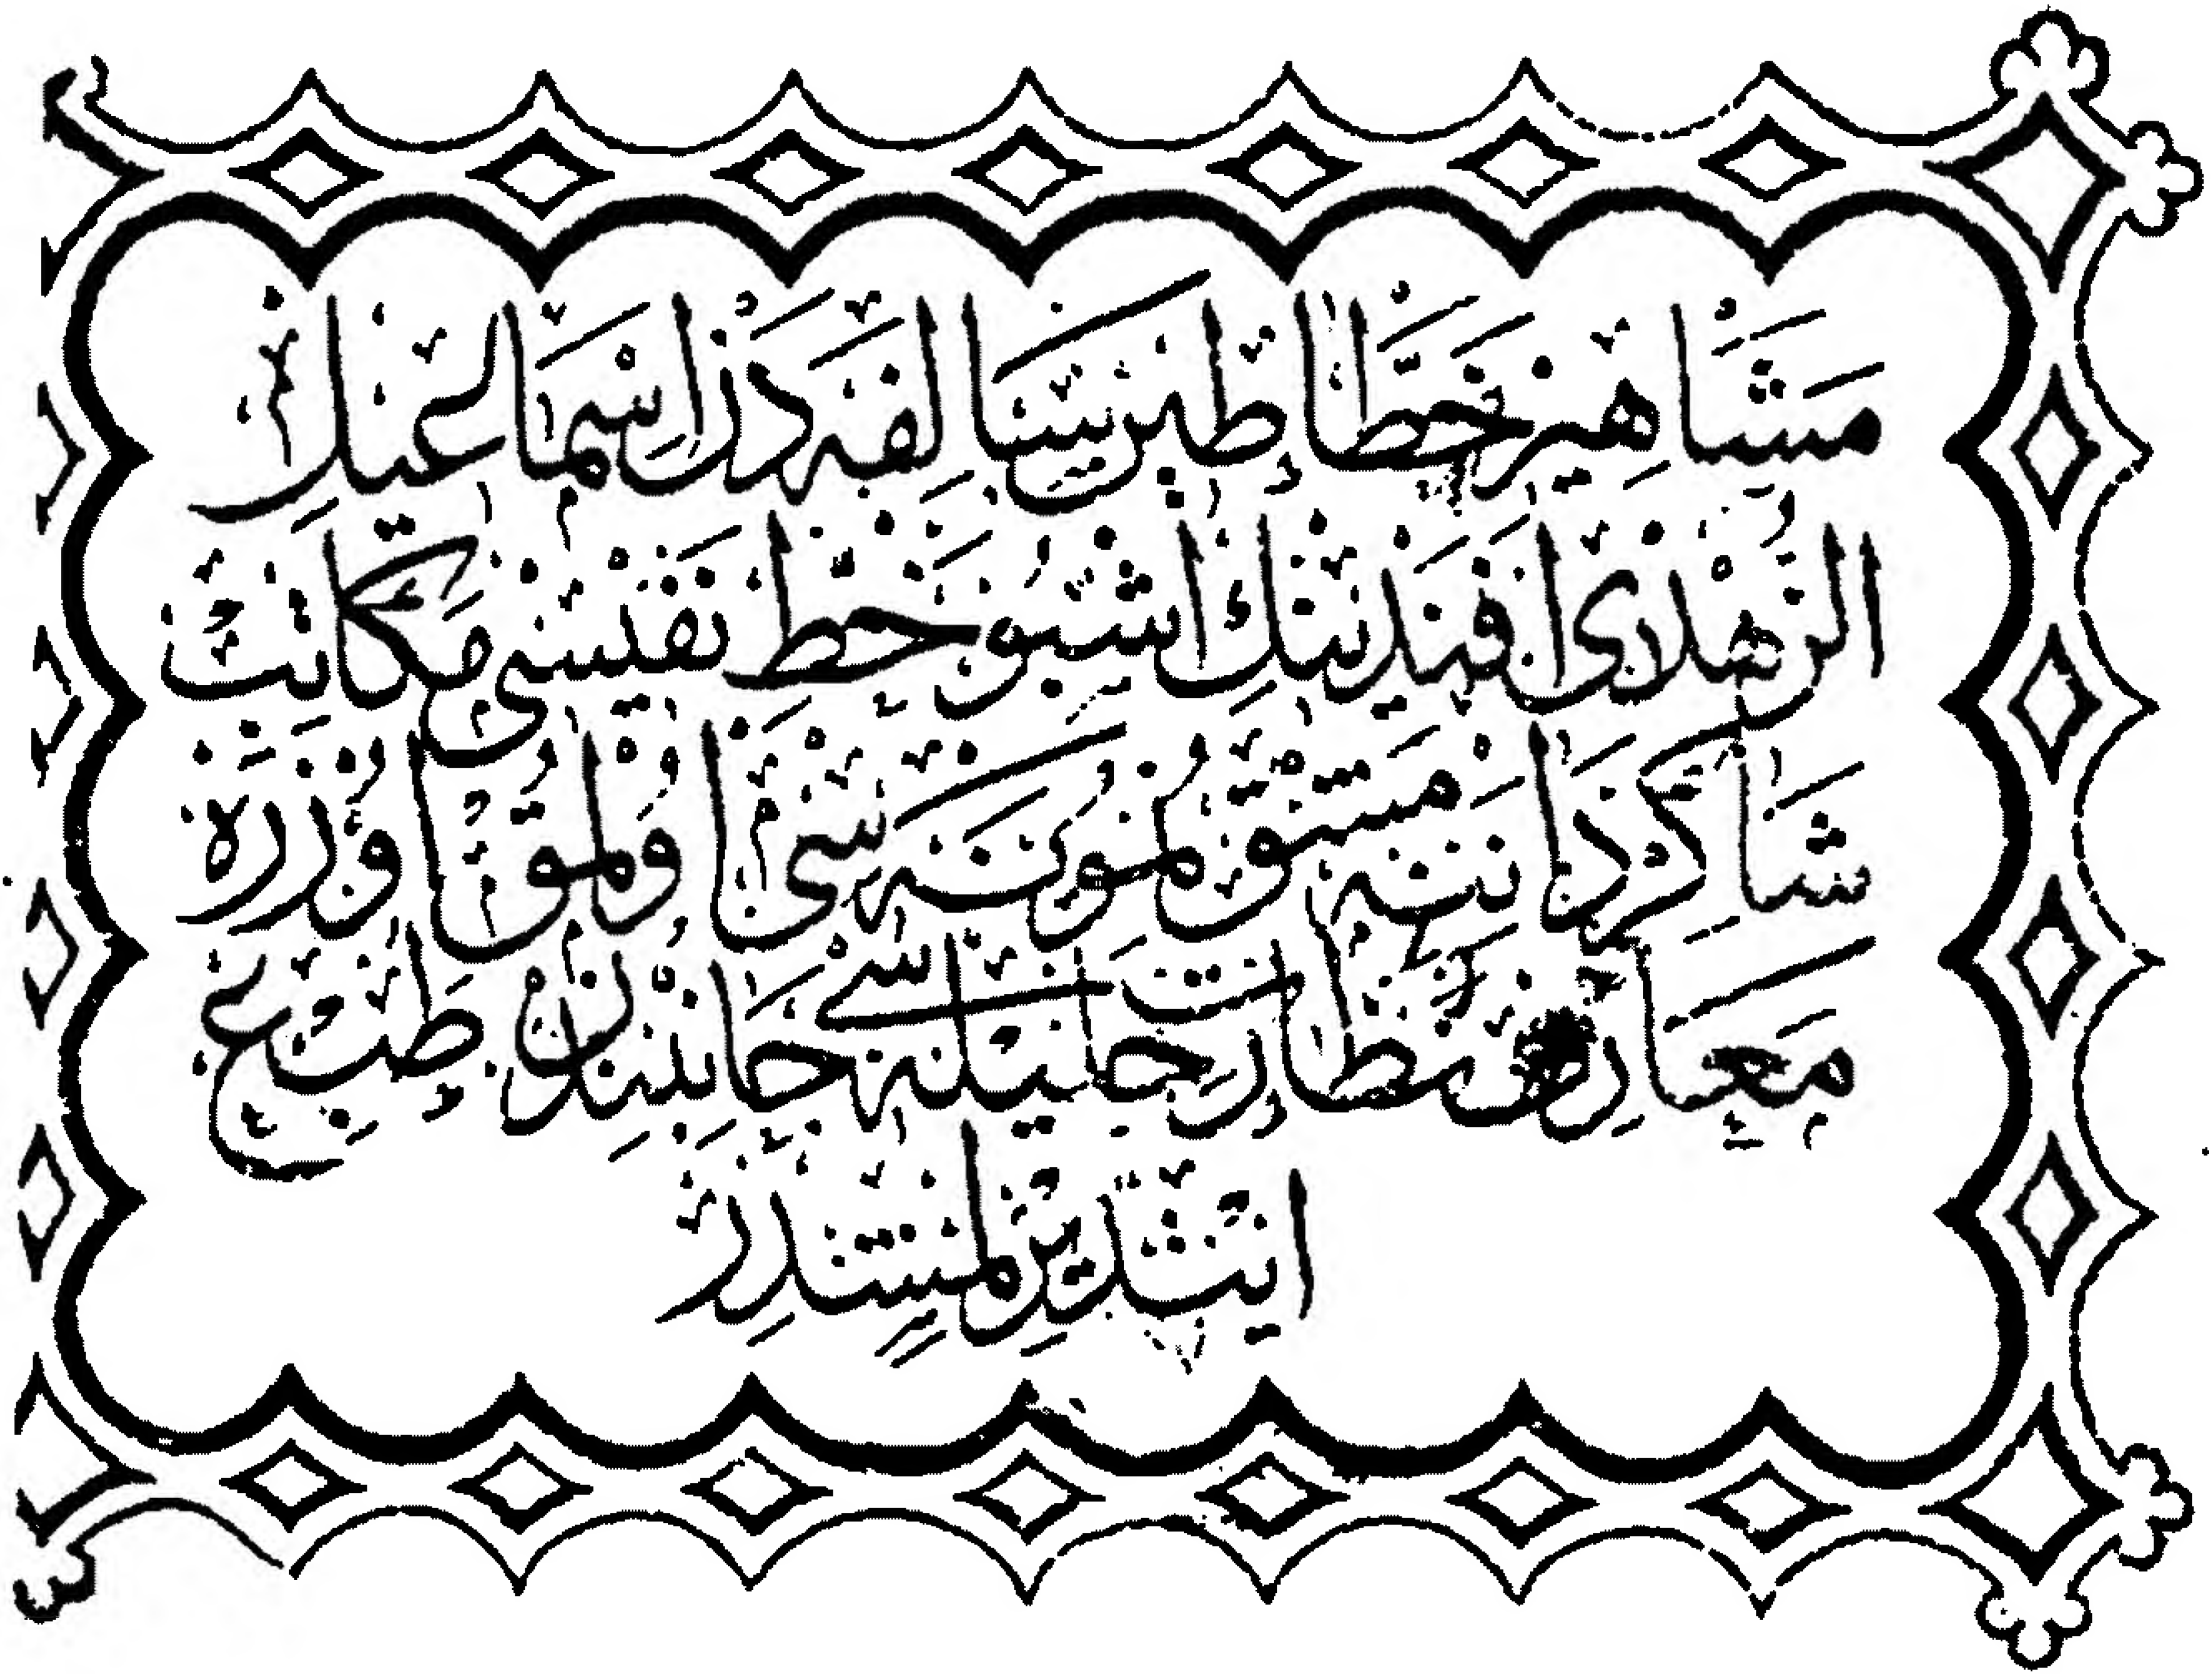 مشاهير خطاطين سالفه دن اسماعيل
الزهدى افندينك اشبو خط نفيسى مكاتب
شاكرداننه مشق نمونه سى اولمق اوزره
معارف نظارت جليله سى جانبندن طبع
ايتدير لمشدر